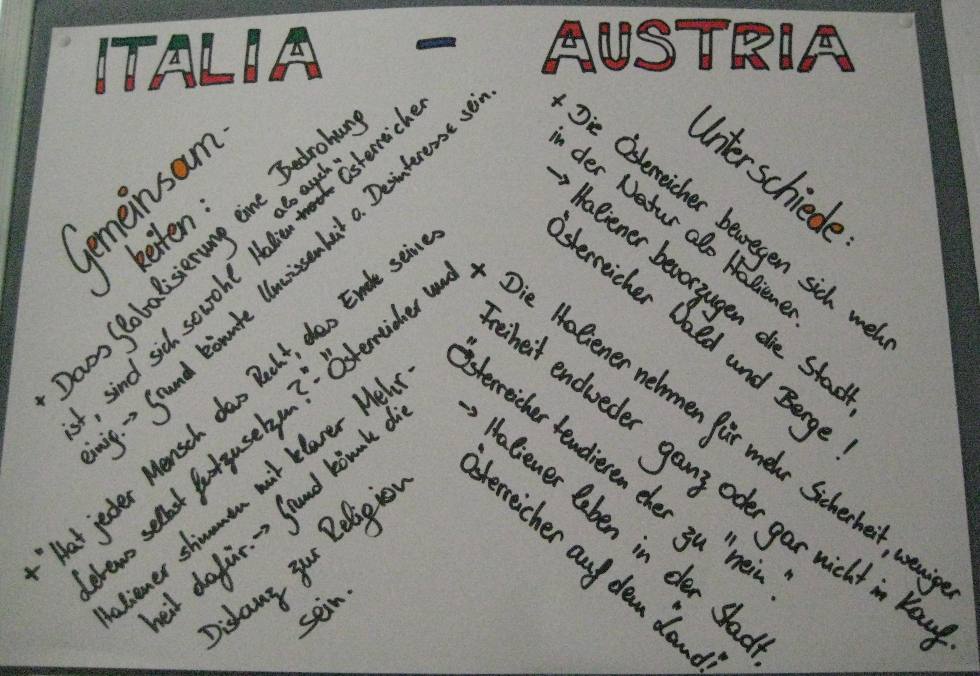 ITALIA - AUSTRIA
Gemeinsam-
keiten:
+ Dass Globalisierung eine Bedrohung
ist, sind sich sowohl Italien als auch Österreicher
einig. -> Grund könnte Unwissenheit o. Desinteresse sein.
+ "Hat jeder Mensch das Recht, das Ende seines
Lebens selbst festzusetzen?" - Österreicher und
Italiener stimmen mit klarer Mehr-
heit dafür. -> Grund könnte die
Distanz zur Religion
sein.
Unterschiede:
+ Die Österreicher bewegen sich mehr
in der Natur als Italiener.
-> Italiener bevorzugen die Stadt,
Österreicher Wald und Berge!
+ Die Italiener nehmen für mehr Sicherheit, weniger
Freiheit endweder ganz oder gar nicht in Kauf.
Österreicher tendieren eher zu "nein".
-> Italiener leben in der Stadt,
Österreicher auf dem "Land!"